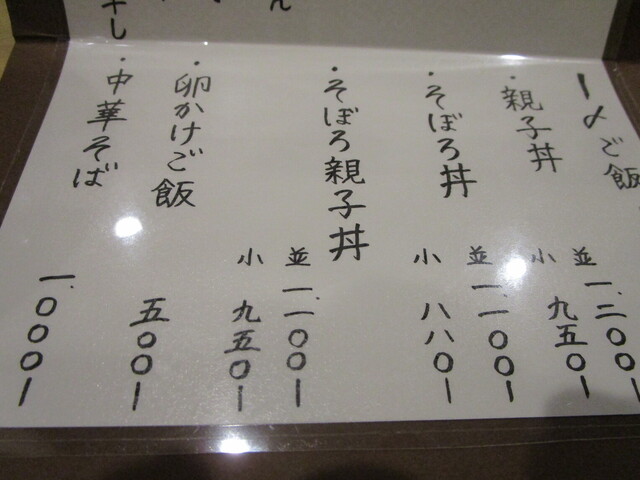 ー〆ご飯
・親子丼
並 一、二〇〇ー
小 九五〇ー
・そぼろ丼
並 一、一〇〇ー
小 八八〇ー
・そぼろ親子丼
並 一、一〇〇ー
小 九五〇ー
・卵かけご飯
五〇〇ー
・中華そば
一、〇〇〇ー